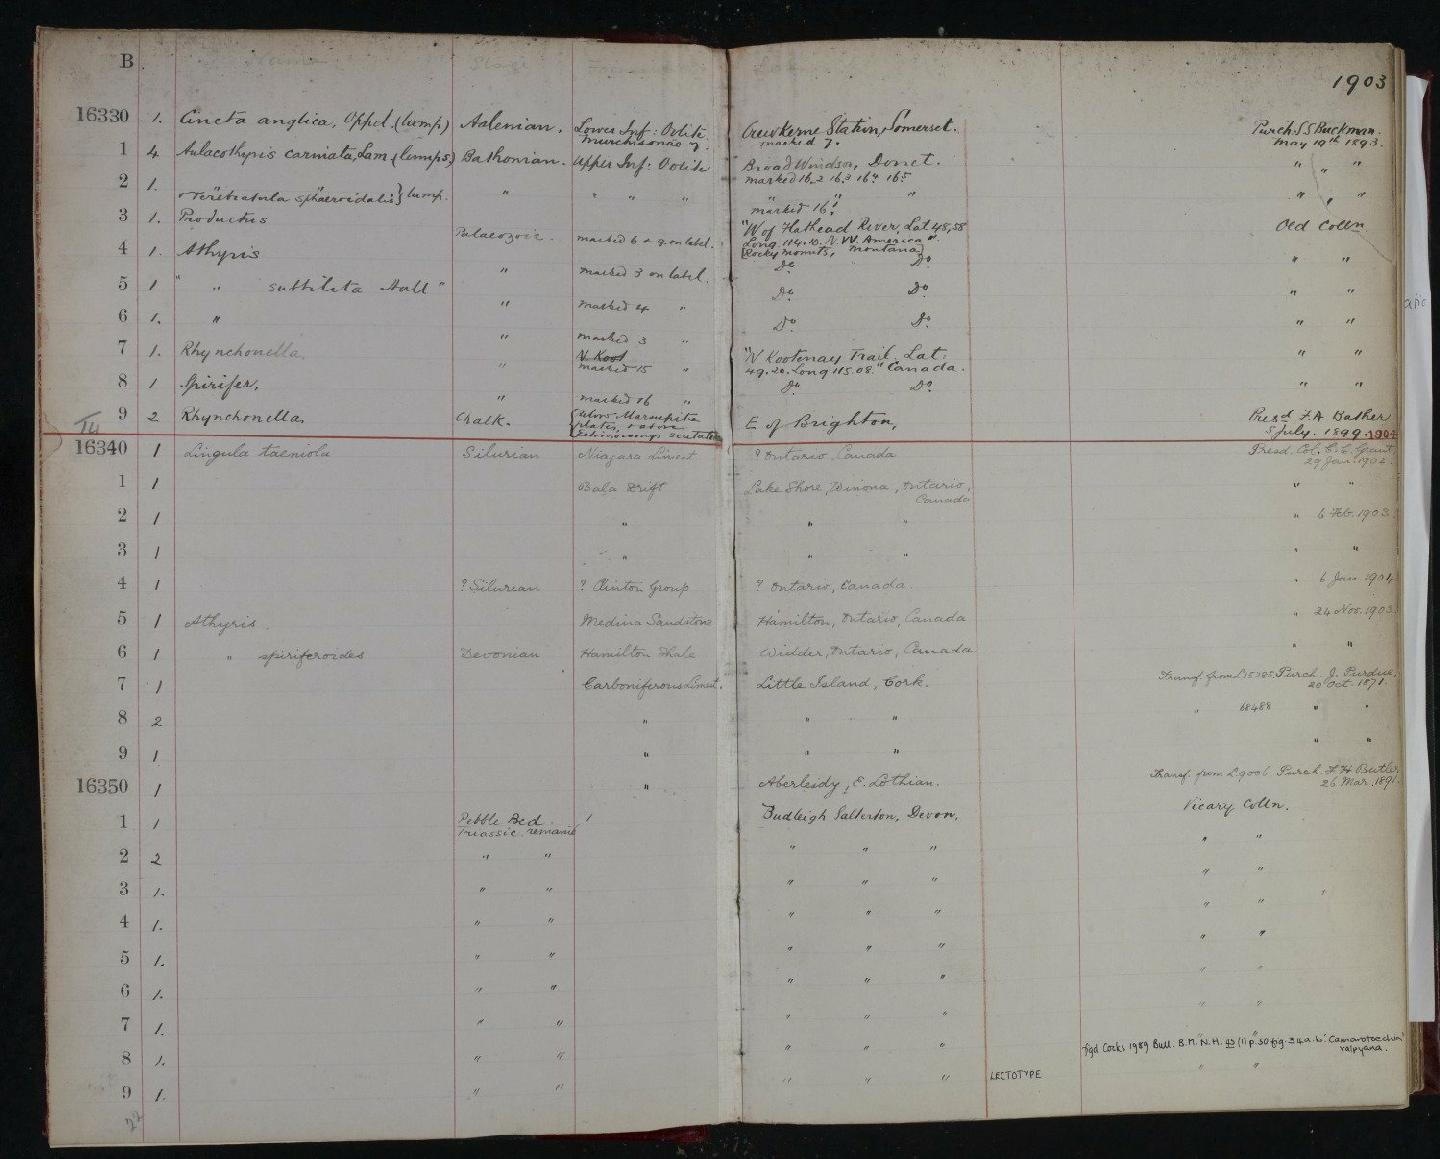 B Name Stage
1903
16330 1. Cincta anglica, Oppel. (lump) Aalenian. Lower Inf: Oolite. Crewkerne Station, Somerset. Purch. S S Buckman.
Murchisonae z. marked 7. May 19th 1893.
1 4 Aulacothyris carinata, Lam (lumps) Bathonian. Upper Inf: Oolite Broad Windsor, Dorset. " "
marked 16.2 16.3 16.4 16.5
2 1. + Terebratula sphaeroidalis} lump. " " " " " " " " "
marked 16.1
3 1. Productus Palaeozoic. marked 6 & 9 on label. "W of Flathead River, Lat 48,58 Old Colln
Long. 114.10. N.W. America".
[Rocky Mounts, Montana]
4 1. Athyris " marked 3 on label. Do. Do. " "
5 1 " " subtilita Hall" " marked 4 " Do. Do. " "
6 1. " " marked 3 " Do. Do. " "
7 1. Rhynchonella. " N Koot "N Kootenay Trail. Lat: " "
marked 15 " 49.20. Long 115.08." Canada.
8 1 Spirifer. " marked 16 " Do. Do. " "
9 2 Rhynchonella. Chalk. {below Marsupite E of Brighton, Presd F.A. Bather
plates, & above 5 July. 1899. 1904
Echinocorys scutatus
16340 1 Lingula taeniola Silurian Niagara Limest ? Ontario, Canada Presd. Col. C. C. Grant,
29 Jan. 1902.
1 1 Bala Drift Lake Shore, Winona, Ontario, " "
Canada
2 1 " " " " 6 Feb. 1903.
3 1 " " " " "
4 1 ? Silurian ? Clinton Group ? Ontario, Canada. " 6 Jan. 1904
5 1 Athyris. Medina Sandstone Hamilton, Ontario, Canada " 24 Nov. 1903.
6 1 " spiriferoides Devonian Hamilton Shale Widder, Ontario, Canada " "
7 1 Carboniferous Limest. Little Island, Cork. Transf. from Purch. J. Purdue,
20 Oct. 1871.
8 2 " " " " 68488 " "
9 1 " " " " "
16350 1 " Aberlady, E. Lothian. Transf. from L.9006 Purch. F. H Butler
26 Mar. 1891.
1 1 Pebble Bed Budleigh Salterton, Devon. Vicary Colln.
Triassic. remanié
2 2 " " " " " " "
3 1. " " " " " " "
4 1. " " " " " " "
5 1. " " " " " " "
6 1. " " " " " " "
7 1. " " " " " " "
8 1. " " " " " " "
figd Cocks 1989 Bull. B.M. N.H. 45 (1) p.50 fig. 34a.b. 'Camarotoechia'
ralpyana.
9 1. " " " " " LECTOTYPE " "